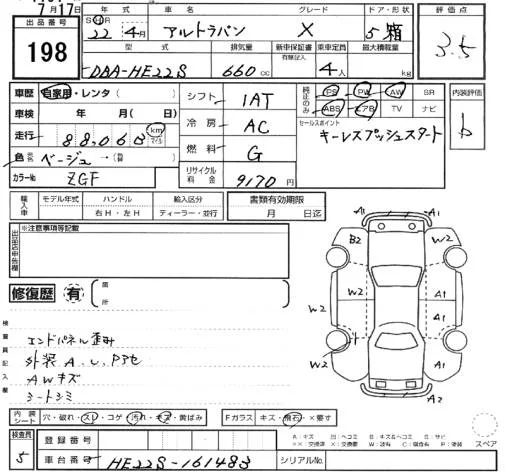 7月17日
出品番号 198
年式 車名 グレード ドア・形状 評価点
S H R
22年 4月 アルトラパン X 5 箱 3.5
型式 排気量 新車保証書 有無記入 乗車定員 最大積載量
DBA-HE22S 660cc 4人 kg
車歴 自家用・レンタ( )
車検 年 月( 日)
走行 88,063 km マイル
色 ベージュ →
カラーNo ZGF
シフト 1AT
冷房 AC
燃料 G
リサイクル料金 9170円
純正のみ PS PW AW SR
ABS エアB TV ナビ
内装評価 b
セールスポイント
キーレスプッシュスタート
輸入車 モデル年式 ハンドル 輸入区分 書類有効期限
右H・左H ディーラー・並行 月 日迄
出品店申告欄 ※注意事項等記載
修復歴 有 箇所
検査員記入欄
エンドパネル歪み
外装 A、U、P アセ
AWキズ
シートシミ
A1 A1
B2 W2
W2 A1
W2 A1
W2 A1
A1 A2
内装シート 穴・破れ・スレ・コゲ・汚れ・キズ・黄ばみ Fガラス キズ・飛石・×要す
スペア
検査員 5
登録番号
車台番号 HE22S-161483 シリアルNo.